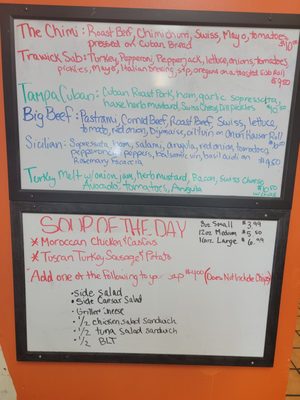 The Chimi: Roast Beef, Chimichurri, Swiss, Mayo, tomatoes,
pressed on Cuban Bread $10
Trawick Sub: Turkey, Pepperoni, Pepperjack, lettuce, onions, tomatoes,
pickles, Mayo, Italian Dressing, s&p, oregano on a toasted Sub Roll
Tampa Cuban: Cuban Roast Pork, ham, garlic, sopressatta,
house herb mustard, Swiss Cheese, Dill pickles
Big Beef: Pastrami, Corned Beef, Roast Beef, Swiss, lettuce,
tomato, red onion, Dijonaise, on Onion Kaiser Roll
Sicilian: Sopressata, ham, salami, arugula, red onion, tomatoes,
pepperoncini peppers, balsamic vin, basil aioli on
Rosemary focaccia
Turkey Melt w/ onion jam, herb mustard, Bacon, Swiss Cheese,
Avocado, tomatoes, Arugula
SOUP OF THE DAY
8oz Small $3.99
12oz Medium $5.50
16oz Large $6.99
* Moroccan Chicken & CousCous
* Tuscan Turkey Sausage & Potato
Add one of the following to your soup $4.00 (Does Not Include Chips)
• Side Salad
• Side Caesar Salad
• Grilled Cheese
• 1/2 chicken salad sandwich
• 1/2 tuna salad sandwich
• 1/2 BLT